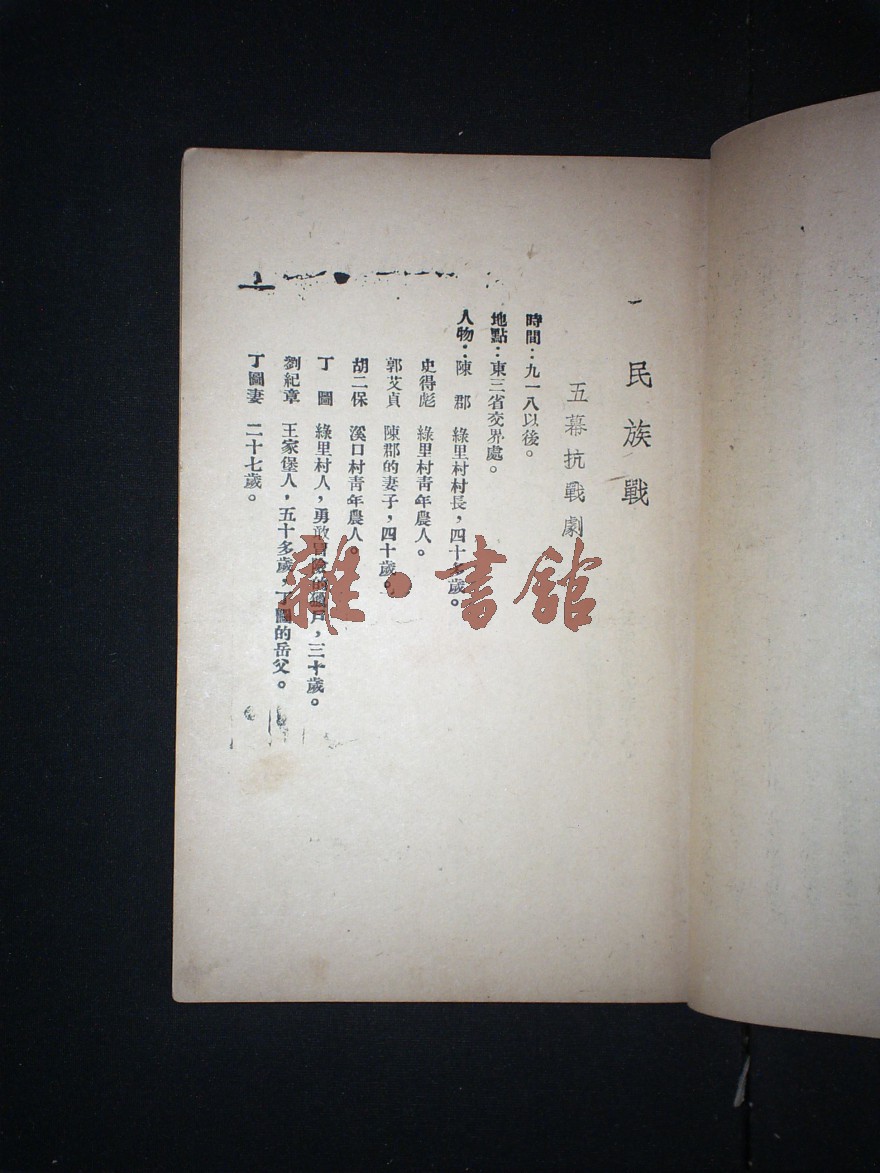 民族戰
五幕抗戰劇
時間：九一八以後。
地點：東三省交界處。
人物：陳 郡 綠里村村長，四十多歲。
史得彪 綠里村青年農人。
郭艾貞 陳郡的妻子，四十歲。
胡二保 溪口村青年農人。
丁 圖 綠里村人，勇敢冒險的獵戶，三十歲。
劉紀章 王家堡人，五十多歲，丁圖的岳父。
丁圖妻 二十七歲。
雜·書館